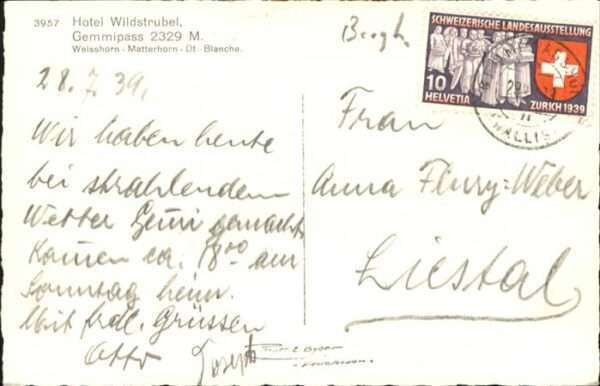 3957 Hotel Wildstrubel,
Gemmipass 2329 M.
Weisshorn - Matterhorn - Dt. Blanche.
SCHWEIZERISCHE LANDESAUSSTELLUNG
10
HELVETIA
ZÜRICH 1939
28.7.39.
Wir haben heute
bei strahlendem
Wetter gemacht
Kamen ca. 18⁰⁰ am
Sonntag heim.
Mit frdl. Grüssen
Otto Joseph
Frau
Anna Flury-Weber
Liestal